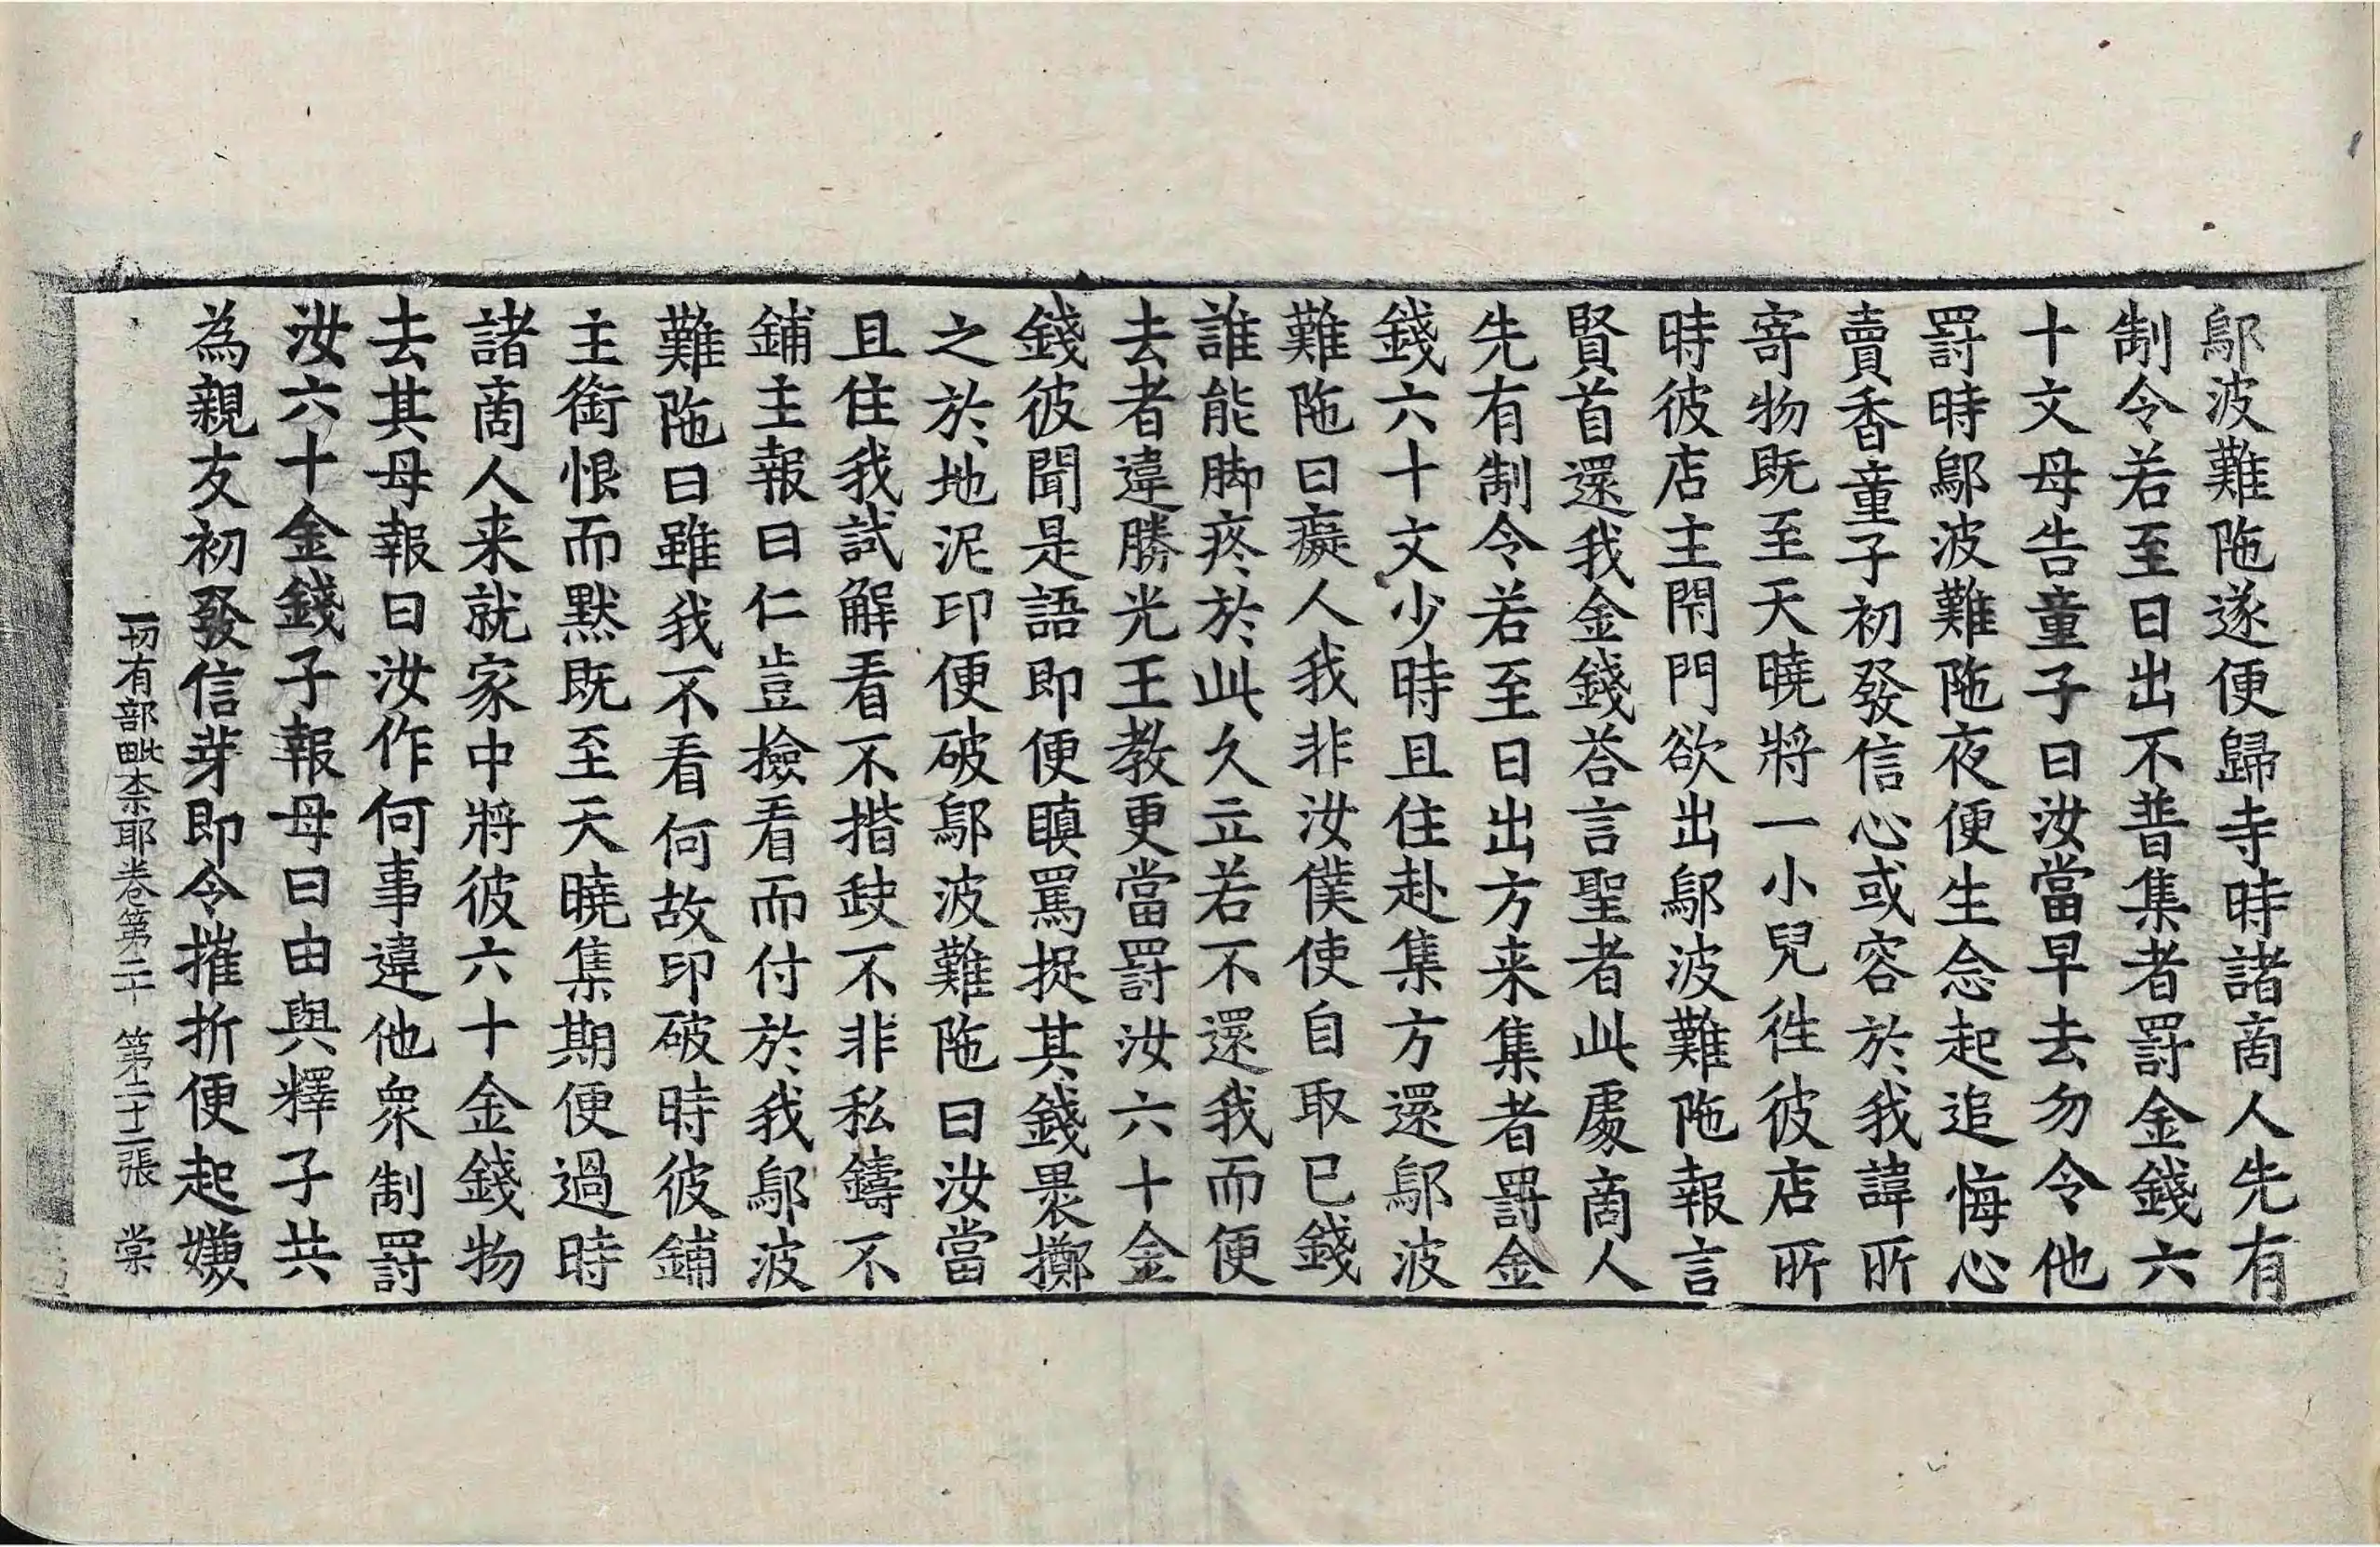 鄔波難陁遂便歸寺時諸啇人先有
制令若至日出不普集者罸金錢六
十文母告童子曰汝當早去勿令他
罸時鄔波難陁夜便生念起追悔心
賣香童子初發信心或容於我諱所
寄物既至天曉將一小兒徃彼店所
時彼店主閇門欲出鄔波難陁報言
賢首還我金錢荅言聖者此處啇人
先有制令若至日出方来集者罸金
錢六十文少時且住赴集方還鄔波
難陁曰癡人我非汝僕使自取已錢
誰能脚疼於此久立若不還我而便
去者違勝光王教更當罸汝六十金
錢彼聞是語即便瞋罵捉其錢褁擲
之於地泥印便破鄔波難陁曰汝當
且住我試解看不揩䤠不非私鑄不
鋪主報曰仁豈撿看而付於我鄔波
難陁曰雖我不看何故印破時彼鋪
主銜恨而默既至天曉集期便過時
諸啇人来就家中將彼六十金錢物
去其母報曰汝作何事違他衆制罸
汝六十金錢子報母曰由與釋子共
為親友初發信芽即令摧折便起嫌
一切有部毗柰耶卷第二十 第二十二張 棠